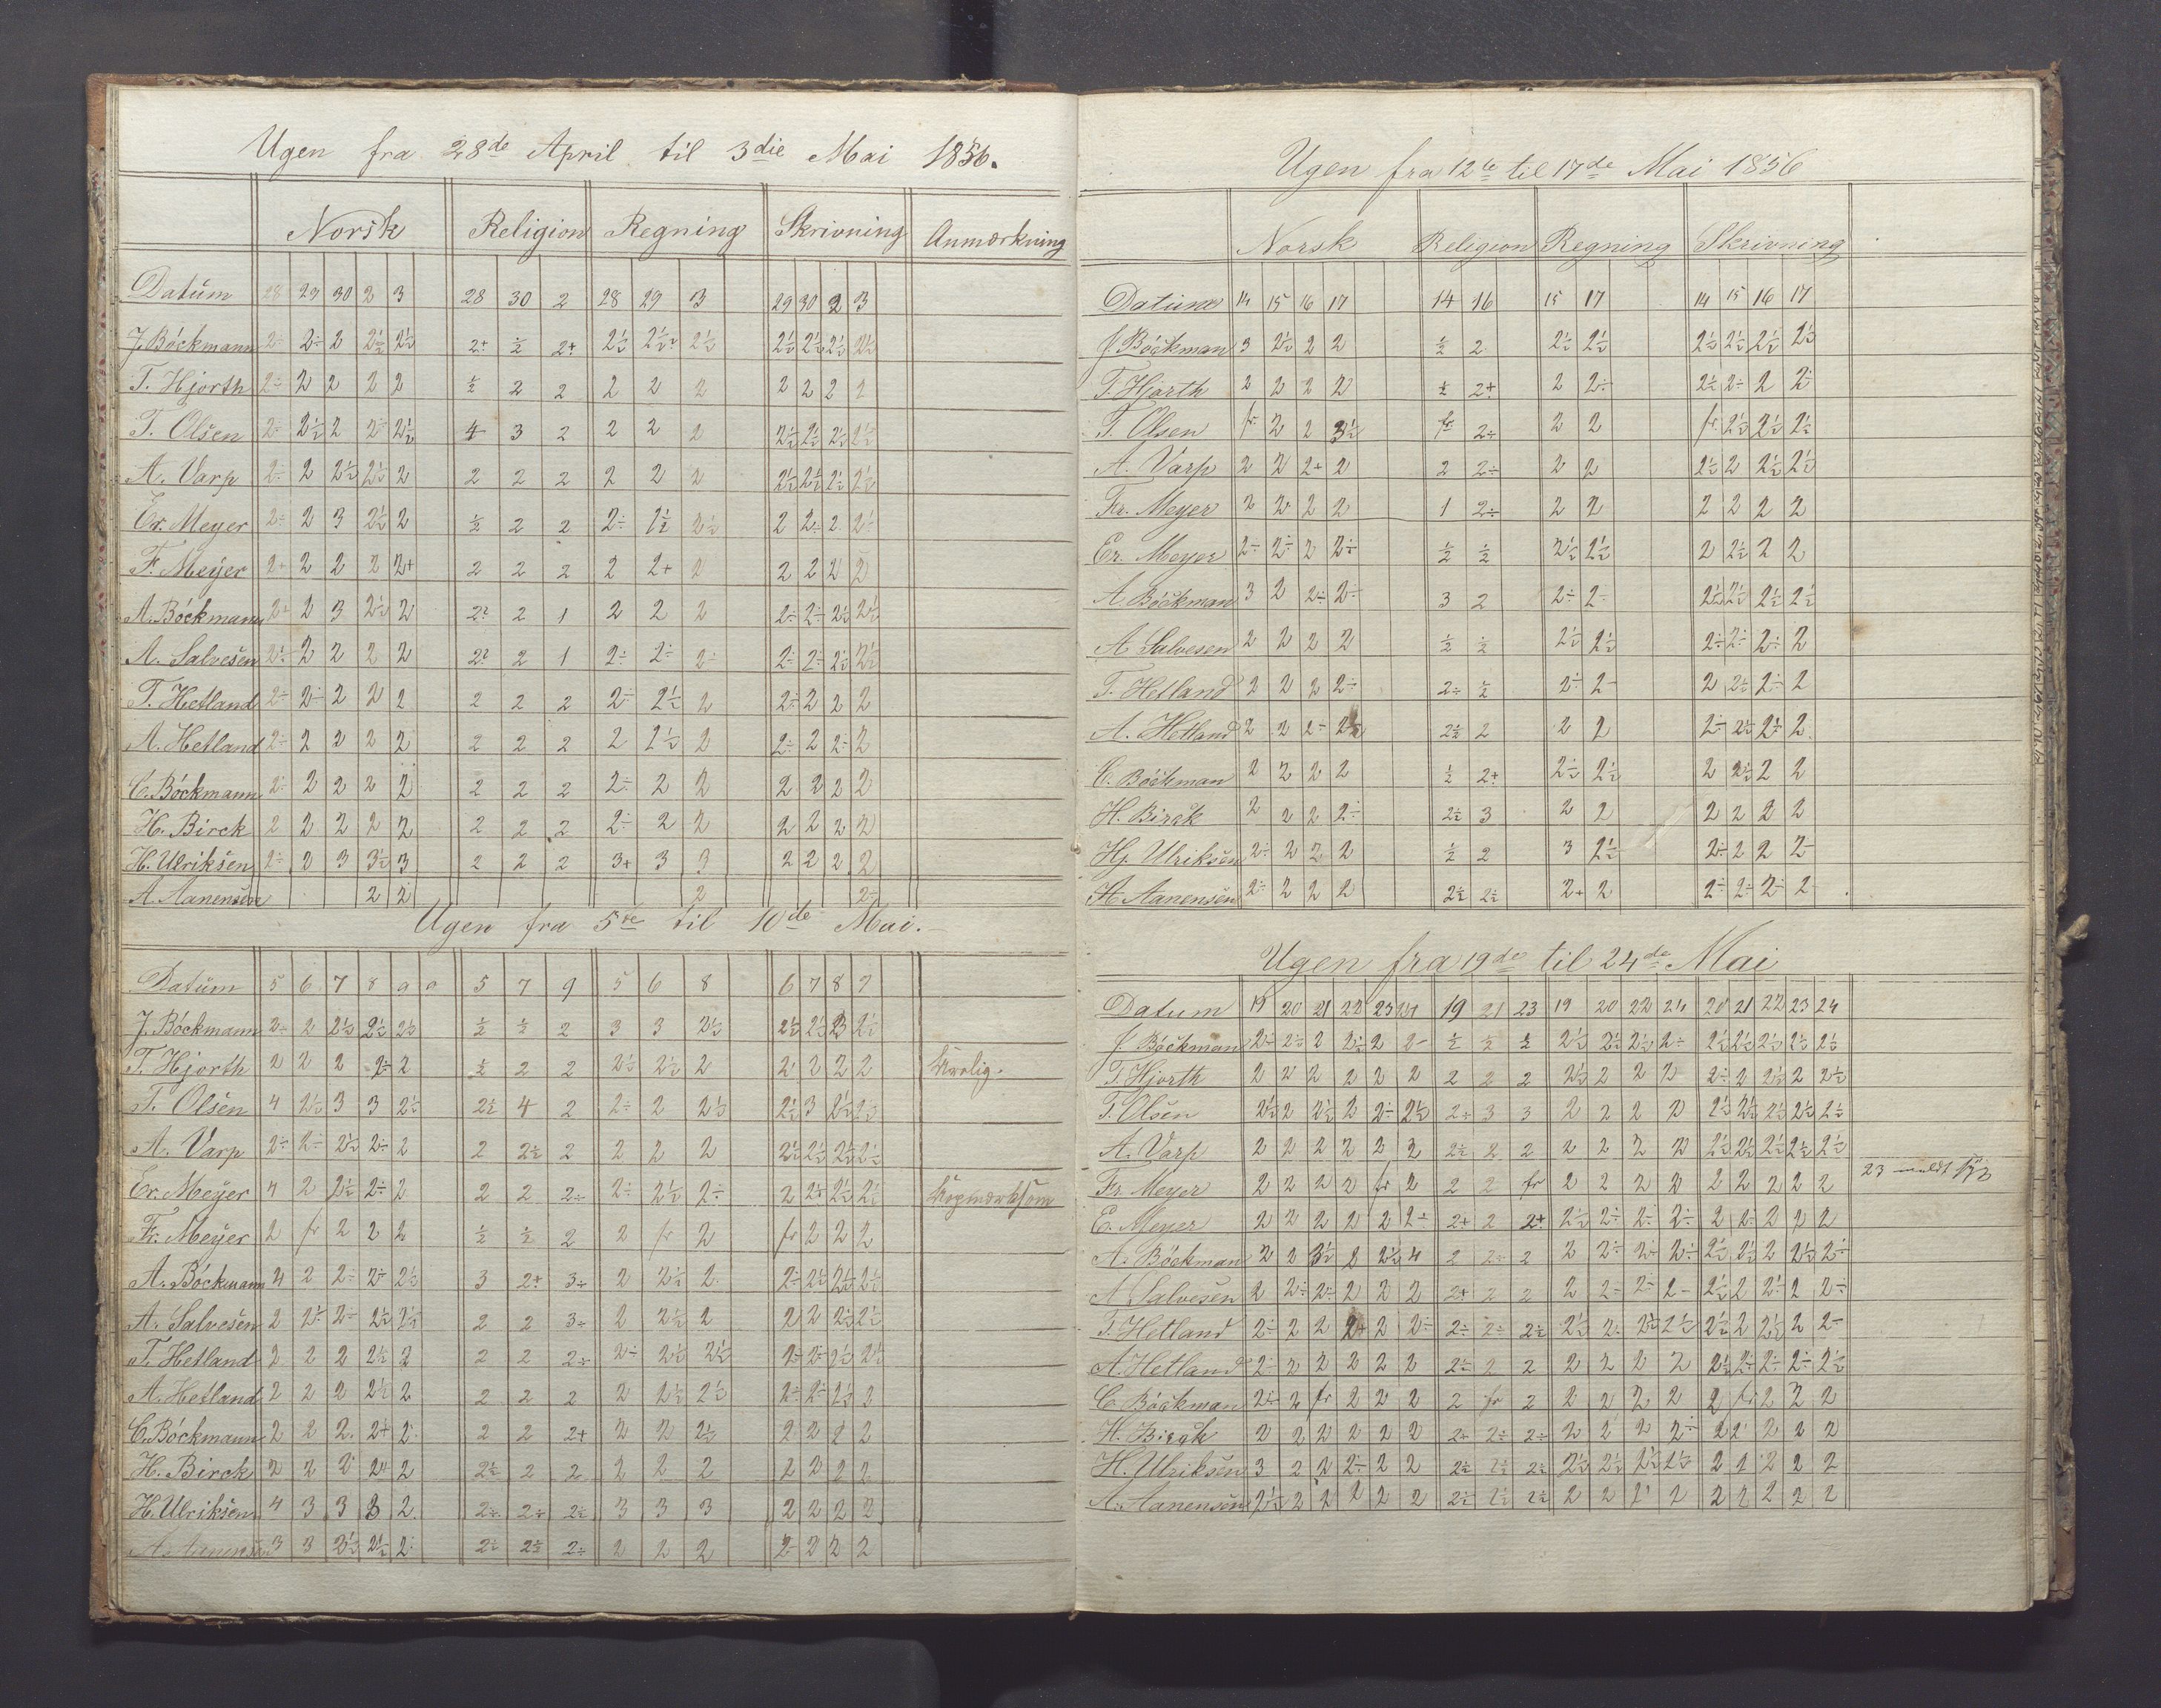 Ugen fra 28de April til 3die Mai 1856.
Norsk Religion Regning Skrivning Anmærkning
Datum 28 29 30 2 3 28 30 2 28 29 3 29 30 2 3
J. Böckmann 2÷ 2÷ 2 2½ 2½ 2+ ½ 2+ 2½ 2½ 2½ 2½ 2½ 2½ 2½
T. Hjorth 2÷ 2 2 2 2 ½ 2 2 2 2 2 2 2 2 2
T. Olsen 2÷ 2½ 2 2÷ 2½ 4 3 2 2 2 2 2½ 2½ 2½ 2½
A. Varp 2÷ 2 2½ 2½ 2 2 2 2 2 2 2 2½ 2½ 2½ 2½
Er. Meyer 2÷ 2 3 2½ 2 ½ 2 2 2÷ 2½ 2½ 2 2÷ 2 2÷
F. Meÿer 2+ 2 2 2 2+ 2 2 2 2 2+ 2 2 2 2 2
A. Böckmann 2÷ 2 3 2½ 2 2? 2 1 2 2 2 2÷ 2÷ 2½ 2½
A. Salvesen 2½ 2 2 2 2 2? 2 1 2÷ 2÷ 2÷ 2÷ 2÷ 2½ 2½
T. Hetland 2÷ 2÷ 2 2 2 2 2 2 2÷ 2½ 2 2÷ 2 2 2
A. Hetland 2÷ 2 2 2 2 2 2 2 2 2½ 2 2÷ 2 2÷ 2
C. Böckmann 2÷ 2 2 2 2 2 2 2 2÷ 2 2 2 2 2 2
H. Birck 2 2 2 2 2 2 2 2 2÷ 2 2 2 2 2 2
H. Ulriksen 2÷ 2 3 3½ 3 2 2 2 3+ 3 3 2 2 2 2
A. Aanensen 2 2 2 2÷
Ugen fra 5te til 10de Mai.
Datum 5 6 7 8 9 5 7 9 5 6 8 6 7 8 9
J. Böckmann 2÷ 2 2½ 2½ 2½ ½ ½ 2 3 3 2½ 2½ 2½ 3 2½
T. Hjorth 2 2 2 2÷ 2 ½ 2 2 2½ 2½ 2 2 2 2 2 Urolig.
T. Olsen 4 2½ 3 3 2½ 2½ 4 2 2÷ 2 2½ 2½ 3 2½ 2½
A. Varp 2÷ 2÷ 2½ 2÷ 2 2 2½ 2 2 2 2 2½ 2½ 2½ 2½
Er. Meÿer 4 2 2½ 2÷ 2 2 2 2÷ 2÷ 2½ 2÷ 2 2÷ 2½ 2½ Uopmærksom
Fr. Meÿer 2 fr 2 2 2 ½ ½ 2 2 fr 2 fr 2 2 2
A. Böckmann 4 2 2÷ 2÷ 2½ 3 2+ 3÷ 2 2½ 2 2÷ 2½ 2½ 2½
A. Salvesen 2 2÷ 2÷ 2½ 2½ 2 2 3÷ 2 2½ 2 2 2 2½ 2½
T. Hetland 2 2 2 2½ 2 2 2 2÷ 2÷ 2½ 2½ 2÷ 2÷ 2½ 2½
A. Hetland 2 2 2 2½ 2 2 2 2 2 2½ 2½ 2÷ 2÷ 2½ 2
C. Böckmann 2 2 2 2+ 2 2 2 2+ 2 2 2½ 2 2 2 2
H. Birck 2 2 2 2+ 2 2½ 2 2 2 2 2 2 2 2 2
H. Ulriksen 4 3 3 3 2 2÷ 2÷ 2½ 3 3 3 2 2 2 2
A. Aanensen 3 3 3½ 2½ 2÷ 2½ 2½ 2÷ 2 2 2 2 2 2 2
Ugen fra 12te til 17de Mai 1856
Norsk Religion Regning Skrivning
Datum 14 15 16 17 14 16 15 17 14 15 16 17
J. Böckman 3 2½ 2 2 ½ 2 2½ 2½ 2½ 2½ 2½ 2½
T. Hjorth 2 2 2 2 ½ 2+ 2 2÷ 2½ 2÷ 2 2÷
T. Olsen fr 2 2 3½ fr 2÷ 2 2 fr 2½ 2½ 2½
A. Varp 2 2 2+ 2 2 2÷ 2 2 2½ 2 2½ 2½
Fr. Meyer 2 2 2 2 1 2÷ 2 2 2 2 2 2
Er. Meyer 2÷ 2÷ 2 2÷ ½ ½ 2½ 2½ 2 2½ 2 2
A Böckman 3 2 2÷ 2÷ 3 2 2÷ 2÷ 2½ 2½ 2½ 2½
A Salvesen 2 2 2 2 ½ ½ 2½ 2½ 2÷ 2÷ 2÷ 2
T. Hetland 2 2 2 2÷ 2÷ ½ 2÷ 2÷ 2 2½ 2÷ 2
A. Hetland 2 2 2÷ 2½ 2½ 2 2 2 2÷ 2½ 2÷ 2
C. Böckman 2 2 2 2 ½ 2+ 2½ 2½ 2 2½ 2 2
H. Birck 2 2 2 2÷ 2½ 3 2 2 2 2 2 2
Hj. Ulriksen 2÷ 2 2 2 ½ 2 3 2½ 2÷ 2 2 2÷
A Aanensen 2÷ 2 2 2 2½ 2½ 2+ 2 2÷ 2÷ 2÷ 2÷
Ugen fra 19de til 24de Mai
Datum 19 20 21 22 23 24 19 21 23 19 20 22 24 20 21 22 23 24
J. Böckman 2÷ 2½ 2 2½ 2 2÷ ½ ½ ½ 2½ 2½ 2½ 2÷ 2½ 2½ 2½ 2½ 2½
T. Hjorth 2 2 2 2 2 2 2 2 2 2½ 2 2 2 2÷ 2 2½ 2 2½
T. Olsen 2½ 2 2½ 2 2÷ 2½ 2÷ 3 3 2 2 2 2 2½ 2½ 2½ 2½ 2½
A. Varp 2 2 2 2 2 2 2½ 2 2 2 2 2 2 2½ 2½ 2½ 2½ 2½
Fr. Meyer 2 2 2 2 fr 2 2 2 fr 2 2 2 2 2 2 2 2 2 23 meldt syg
E. Meyer 2 2 2 2 2 2÷ 2+ 2 2+ 2½ 2÷ 2÷ 2÷ 2 2÷ 2 2 2
A. Böckman 2 2 3½ 2 2½ 4 2 2÷ 2 2 2÷ 2÷ 2÷ 2½ 2½ 2 2½ 2÷
A Salvesen 2 2÷ 2÷ 2 2 2 2+ 2 2 2 2÷ 2÷ 2÷ 2½ 2 2÷ 2 2÷
T. Hetland 2÷ 2 2 2+ 2 2÷ 2÷ 2÷ 2½ 2½ 2÷ 2½ 2½ 2½ 2 2½ 2 2÷
A. Hetland 2÷ 2 2 2 2 2 2½ 2 2 2 2 2 2 2½ 2÷ 2÷ 2÷ 2½
C Böckman 2÷ 2 fr 2 2 2 2 fr 2 2 2 2 2 2 fr 2 2 2
H. Birck 2 2 2 2 2 2 2÷ 2÷ 2÷ 2 2 2 2÷ 2 2 2 2 2
H. Ulriksen 3 2 2 2÷ 2 2 2½ 2½ 2½ 2½ 2½ 2½ 2½ 2 2 2 2 2
A. Aanensen 2½ 2 2 2 2 2 2½ 2½ 2½ 2 2 2 2 2 2 2 2 2